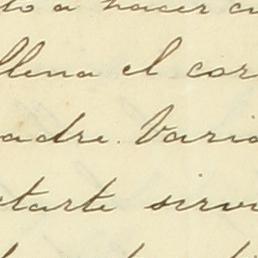 to a hacer cu
llena el cor
adre. Vario
starte servi